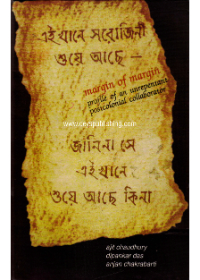 এইখানে সরোজিনী
শুয়ে আছে —
margin of margin
profile of an unrepentant
postcolonial collaborator
www.cenpublishing.com
জানিনা সে
এইখানে
শুয়ে আছে কিনা
ajit chaudhury
dipankar das
anjan chakrabarti